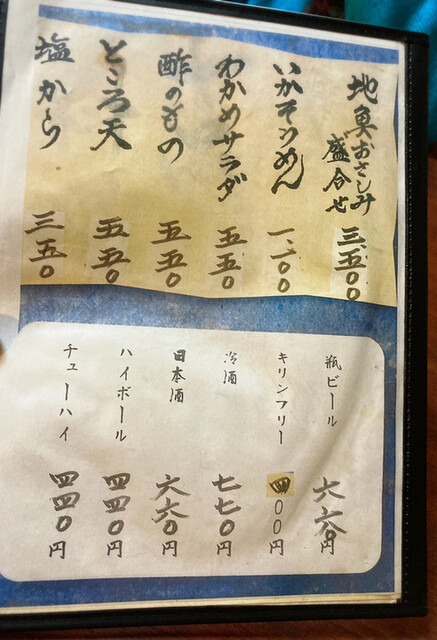 地魚おさしみ
盛合せ
三、五〇〇
いかそうめん
一、一〇〇
わかめサラダ
五五〇
酢のもの
五五〇
ところ天
五五〇
塩から
三五〇
瓶ビール
六六〇円
キリンフリー
四〇〇円
冷酒
七七〇円
日本酒
六六〇円
ハイボール
四四〇円
チューハイ
四四〇円